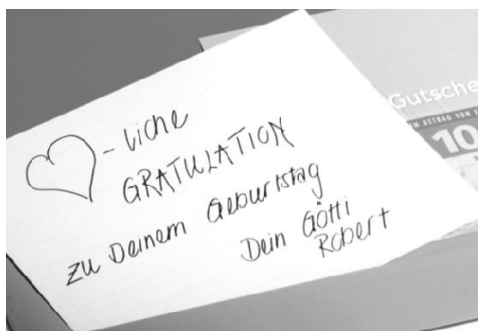 -liche
GRATULATION
zu Deinem Geburtstag
Dein Götti
Robert
Gutsche
10